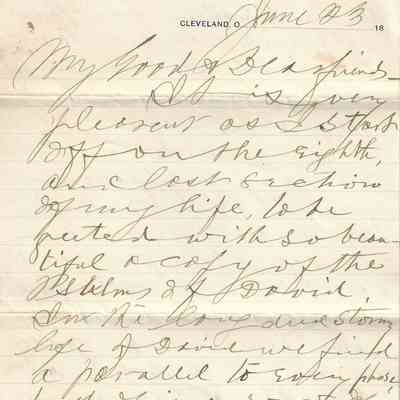 CLEVELAND, O. June 23 18
My Good & Dear friends—
It is very
pleasent as I Start
off on the eighth,
and last Section
of my life, to be
greeted with so beau-
tiful a copy of the
Pslulms of David,
In the long and Stormy
life of David we find
a parallel to every phase